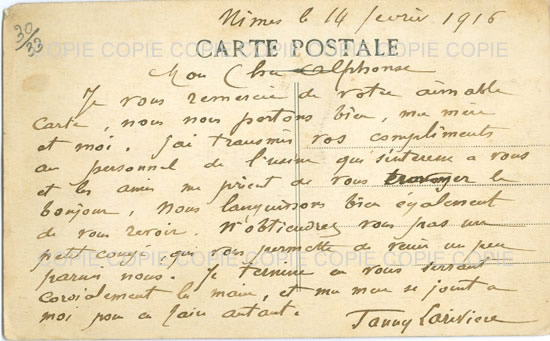 Nimes le 14 fevrier 1916
30/33
CARTE POSTALE
COPIE COPIE COPIE COPIE COPIE COPIE
Mon Cher Alphonse
Je vous remercie de votre aimable
carte, nous nous portons bien, ma mère
et moi. J'ai transmis vos compliments
au personnel de l'usine qui s'interesse a vous
et les amis me prient de vous envoyer le
bonjour, Nous languissons bien également
de vous revoir. N'obtiendrez vous pas un
petit congé, qui vous permette de venir un peu
parmi nous. Je termine en vous serrant
cordialement la main, et ma mere se joint a
moi pour en faire autant.
Fanny Larivière